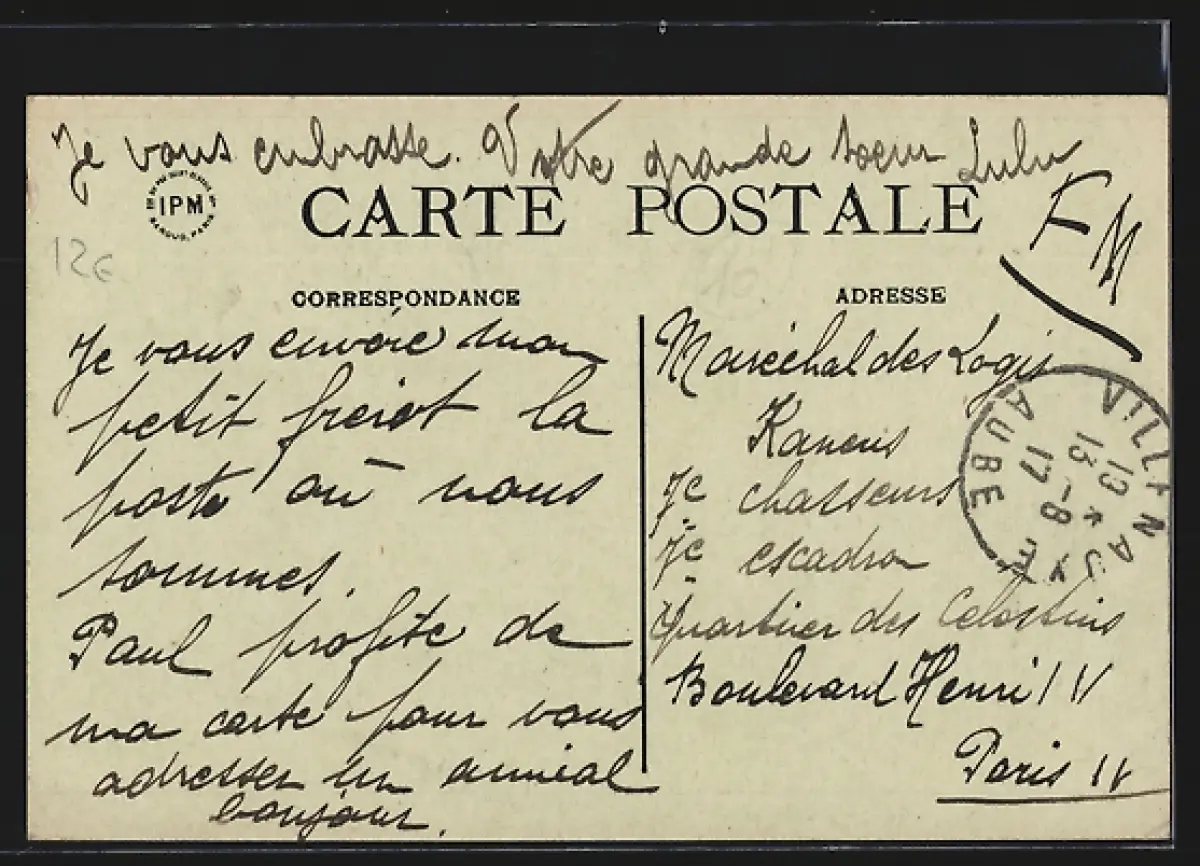 Je vous embrasse. Votre grande soeur Lulu
IPM
CARTE POSTALE
F M
12€
CORRESPONDANCE
Je vous envoie mon
petit frérot la
poste où nous
sommes.
Paul profite de
ma carte pour vous
adresser un amical
bonjour.
ADRESSE
Maréchal des Logis
7e chasseurs
7e escadron
Quartier des Celestins
Boulevard Henri IV
Paris IV
AUBE
17-8